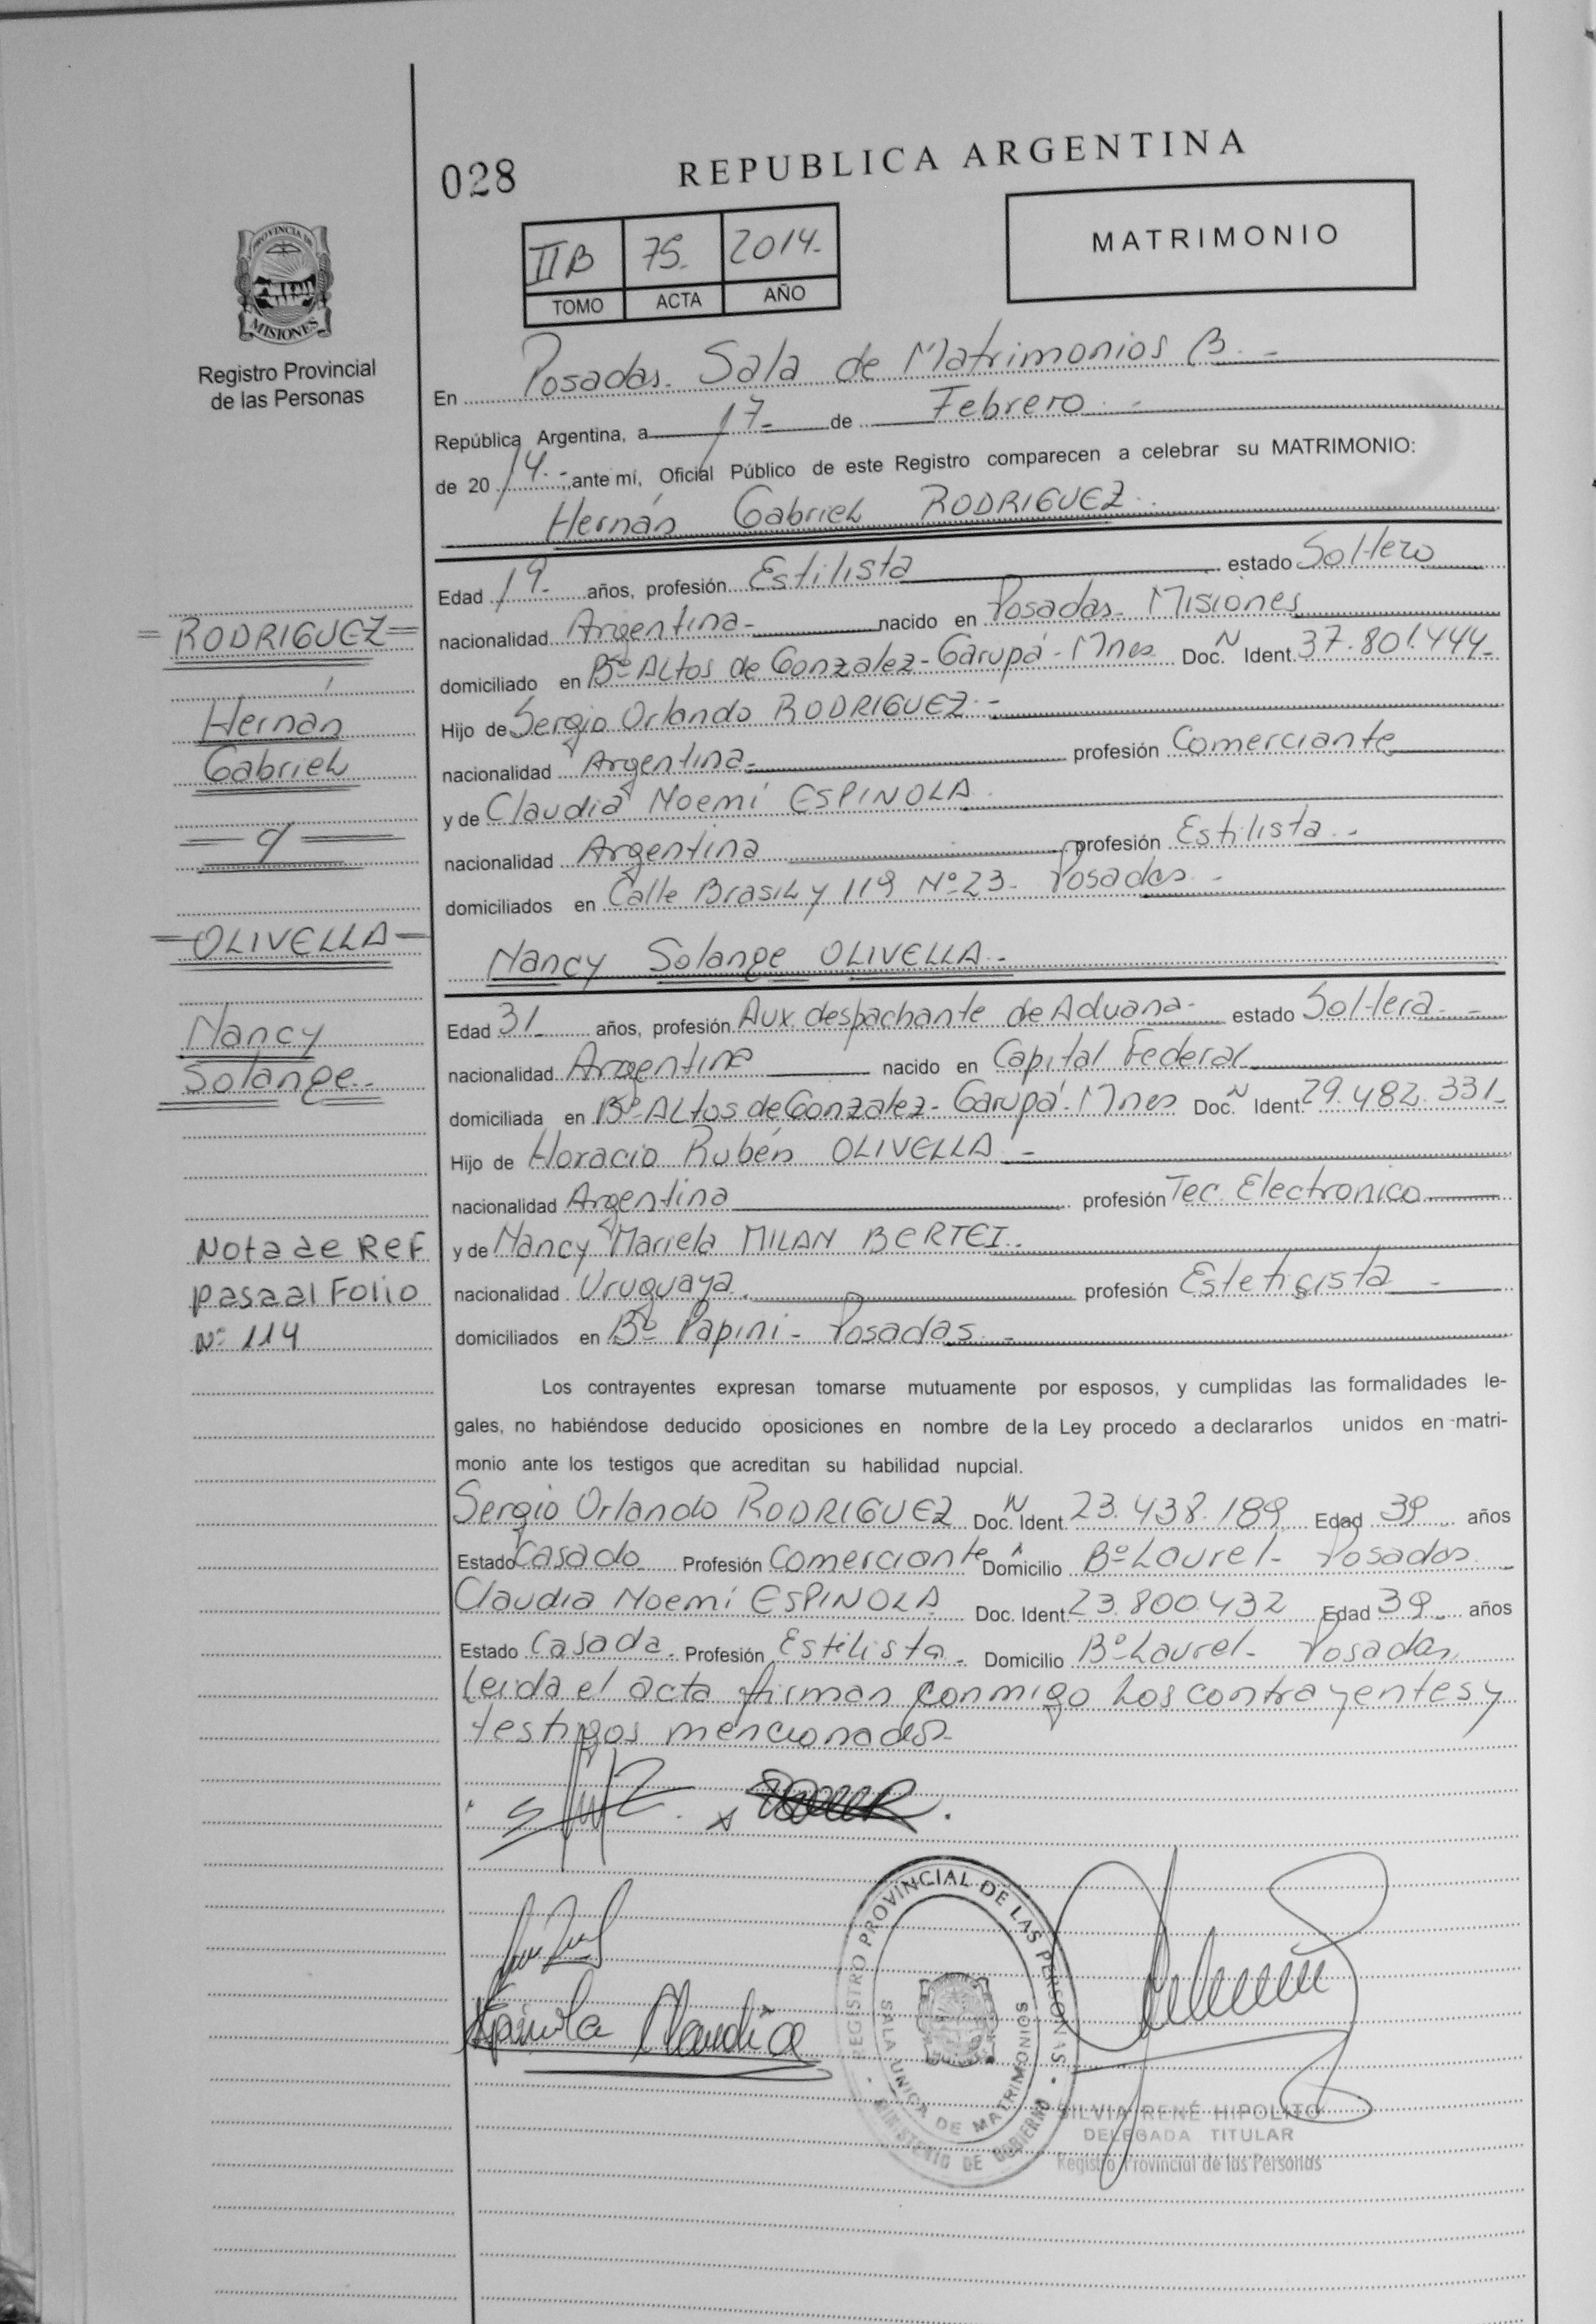 028
REPUBLICA ARGENTINA
IIB 75.- 2014.-
TOMO ACTA AÑO
MATRIMONIO
PROVINCIA DE
MISIONES
Registro Provincial
de las Personas
En Posadas. Sala de Matrimonios B.-
República Argentina, a 17- de Febrero.-
de 20 14.- ante mí, Oficial Público de este Registro comparecen a celebrar su MATRIMONIO:
Hernán Gabriel RODRIGUEZ.
Edad 19.- años, profesión Estilista estado Soltero
nacionalidad Argentina- nacido en Posadas- Misiones
domiciliado en Bº Altos de Gonzalez- Garupá- Mnes Doc. N Ident. 37.801.444-
Hijo de Sergio Orlando RODRIGUEZ.-
nacionalidad Argentina- profesión Comerciante
y de Claudia Noemí ESPINOLA
nacionalidad Argentina profesión Estilista.-
domiciliados en Calle Brasil y 119 Nº 23- Posadas.-
Nancy Solange OLIVELLA.-
Edad 31- años, profesión Aux. despachante de Aduana- estado Soltera.-
nacionalidad Argentina nacido en Capital Federal
domiciliada en Bº Altos de Gonzalez- Garupá- Mnes Doc. N Ident. 29.482.331-
Hijo de Horacio Rubén OLIVELLA.-
nacionalidad Argentina profesión Tec. Electronico
y de Nancy Mariela MILAN BERTEI.
nacionalidad Uruguaya. profesión Esteticista -
domiciliados en Bº Papini- Posadas.-
Los contrayentes expresan tomarse mutuamente por esposos, y cumplidas las formalidades le-
gales, no habiéndose deducido oposiciones en nombre de la Ley procedo a declararlos unidos en matri-
monio ante los testigos que acreditan su habilidad nupcial.
Sergio Orlando RODRIGUEZ Doc. N Ident. 23.438.189 Edad 39 años
Estado Casado Profesión Comerciante Domicilio Bº Laurel- Posadas
Claudia Noemí ESPINOLA Doc. Ident. 23.800.432 Edad 39 años
Estado Casada. Profesión Estilista. Domicilio Bº Laurel- Posadas
Leida el acta firman conmigo los contrayentes y
testigos mencionados-
=RODRIGUEZ=
Hernán
Gabriel
=y=
=OLIVELLA=
Nancy
Solange.-
Nota de Ref
pasa al Folio
Nº 114
Espinola Claudia
REGISTRO PROVINCIAL DE LAS PERSONAS
SALA UNICA DE MATRIMONIOS
MINISTERIO DE GOBIERNO
SILVIA RENÉ HIPOLITO
DELEGADA TITULAR
Registro Provincial de las Personas